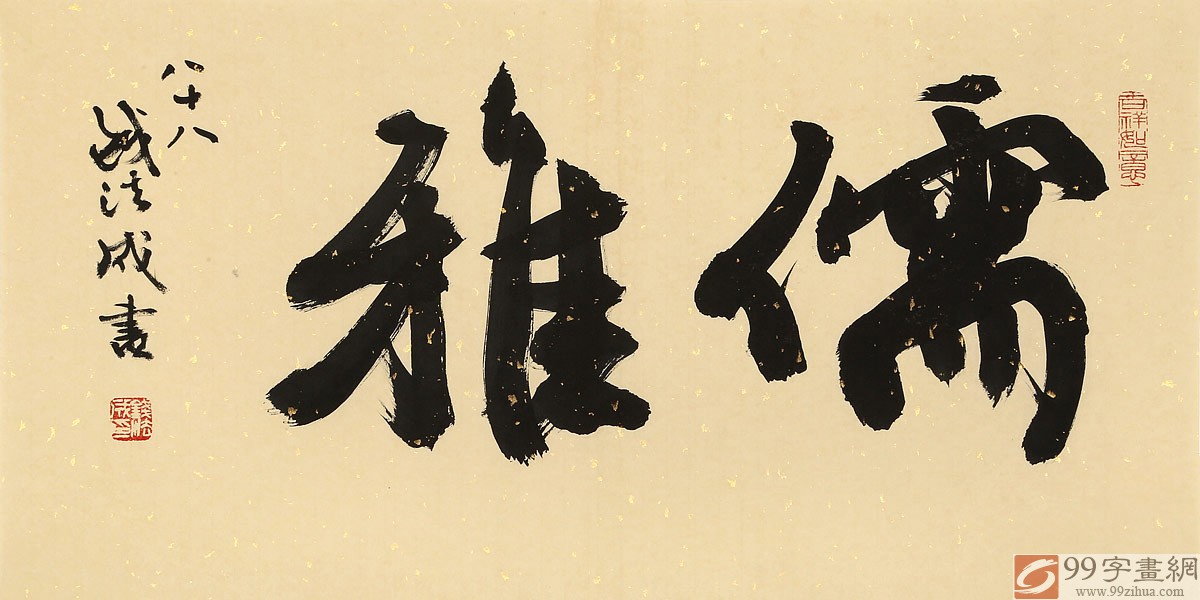 吉祥如意
儒雅
八十八
錢法成書
錢法成印
99字畫網
www.99zihua.com